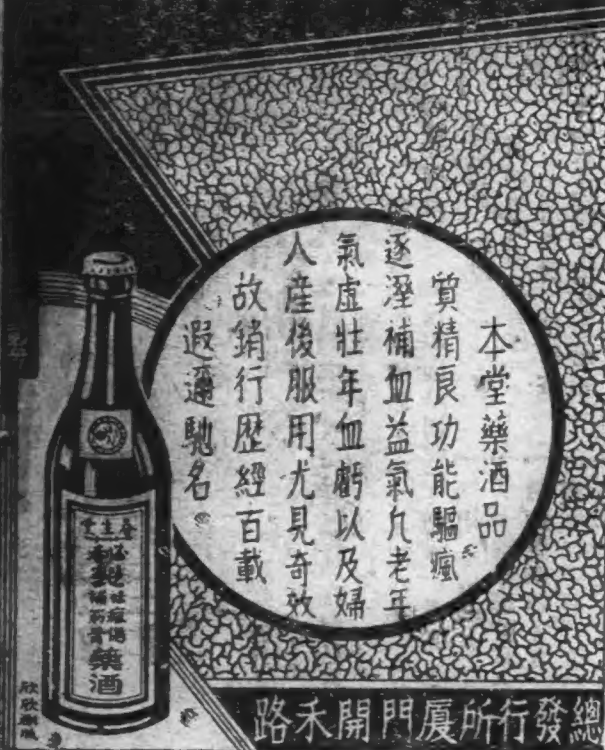 本堂藥酒品
質精良功能驅瘋
逐溼補血益氣凢老年
氣虛壯年血虧以及婦
人産後服用尤見奇效
故銷行歷經百載
遐邇馳名
堂生
藥酒
總發行所廈門開禾路